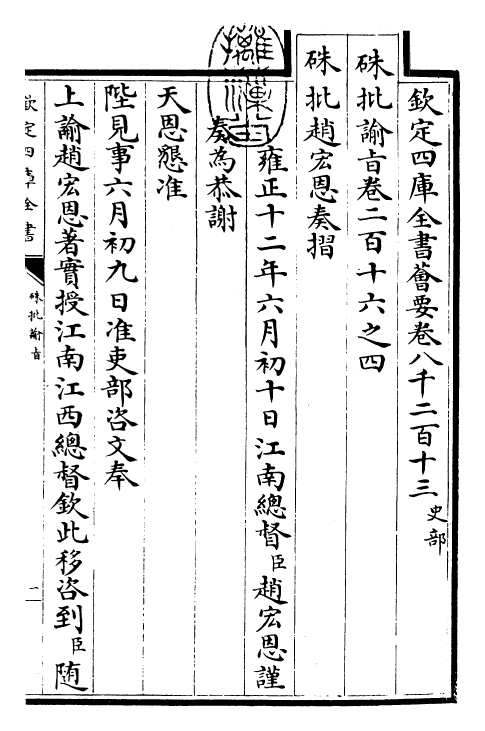 欽定四庫全書薈要卷八千二百十三 史部
硃批諭旨卷二百十六之四
硃批趙宏恩奏摺
雍正十二年六月初十日江南總督臣趙宏恩謹
奏為恭謝
天恩懇准
陛見事六月初九日准吏部咨文奉
上諭趙宏恩著實授江南江西總督欽此移咨到臣隨
欽定四庫全書
硃批諭旨
一